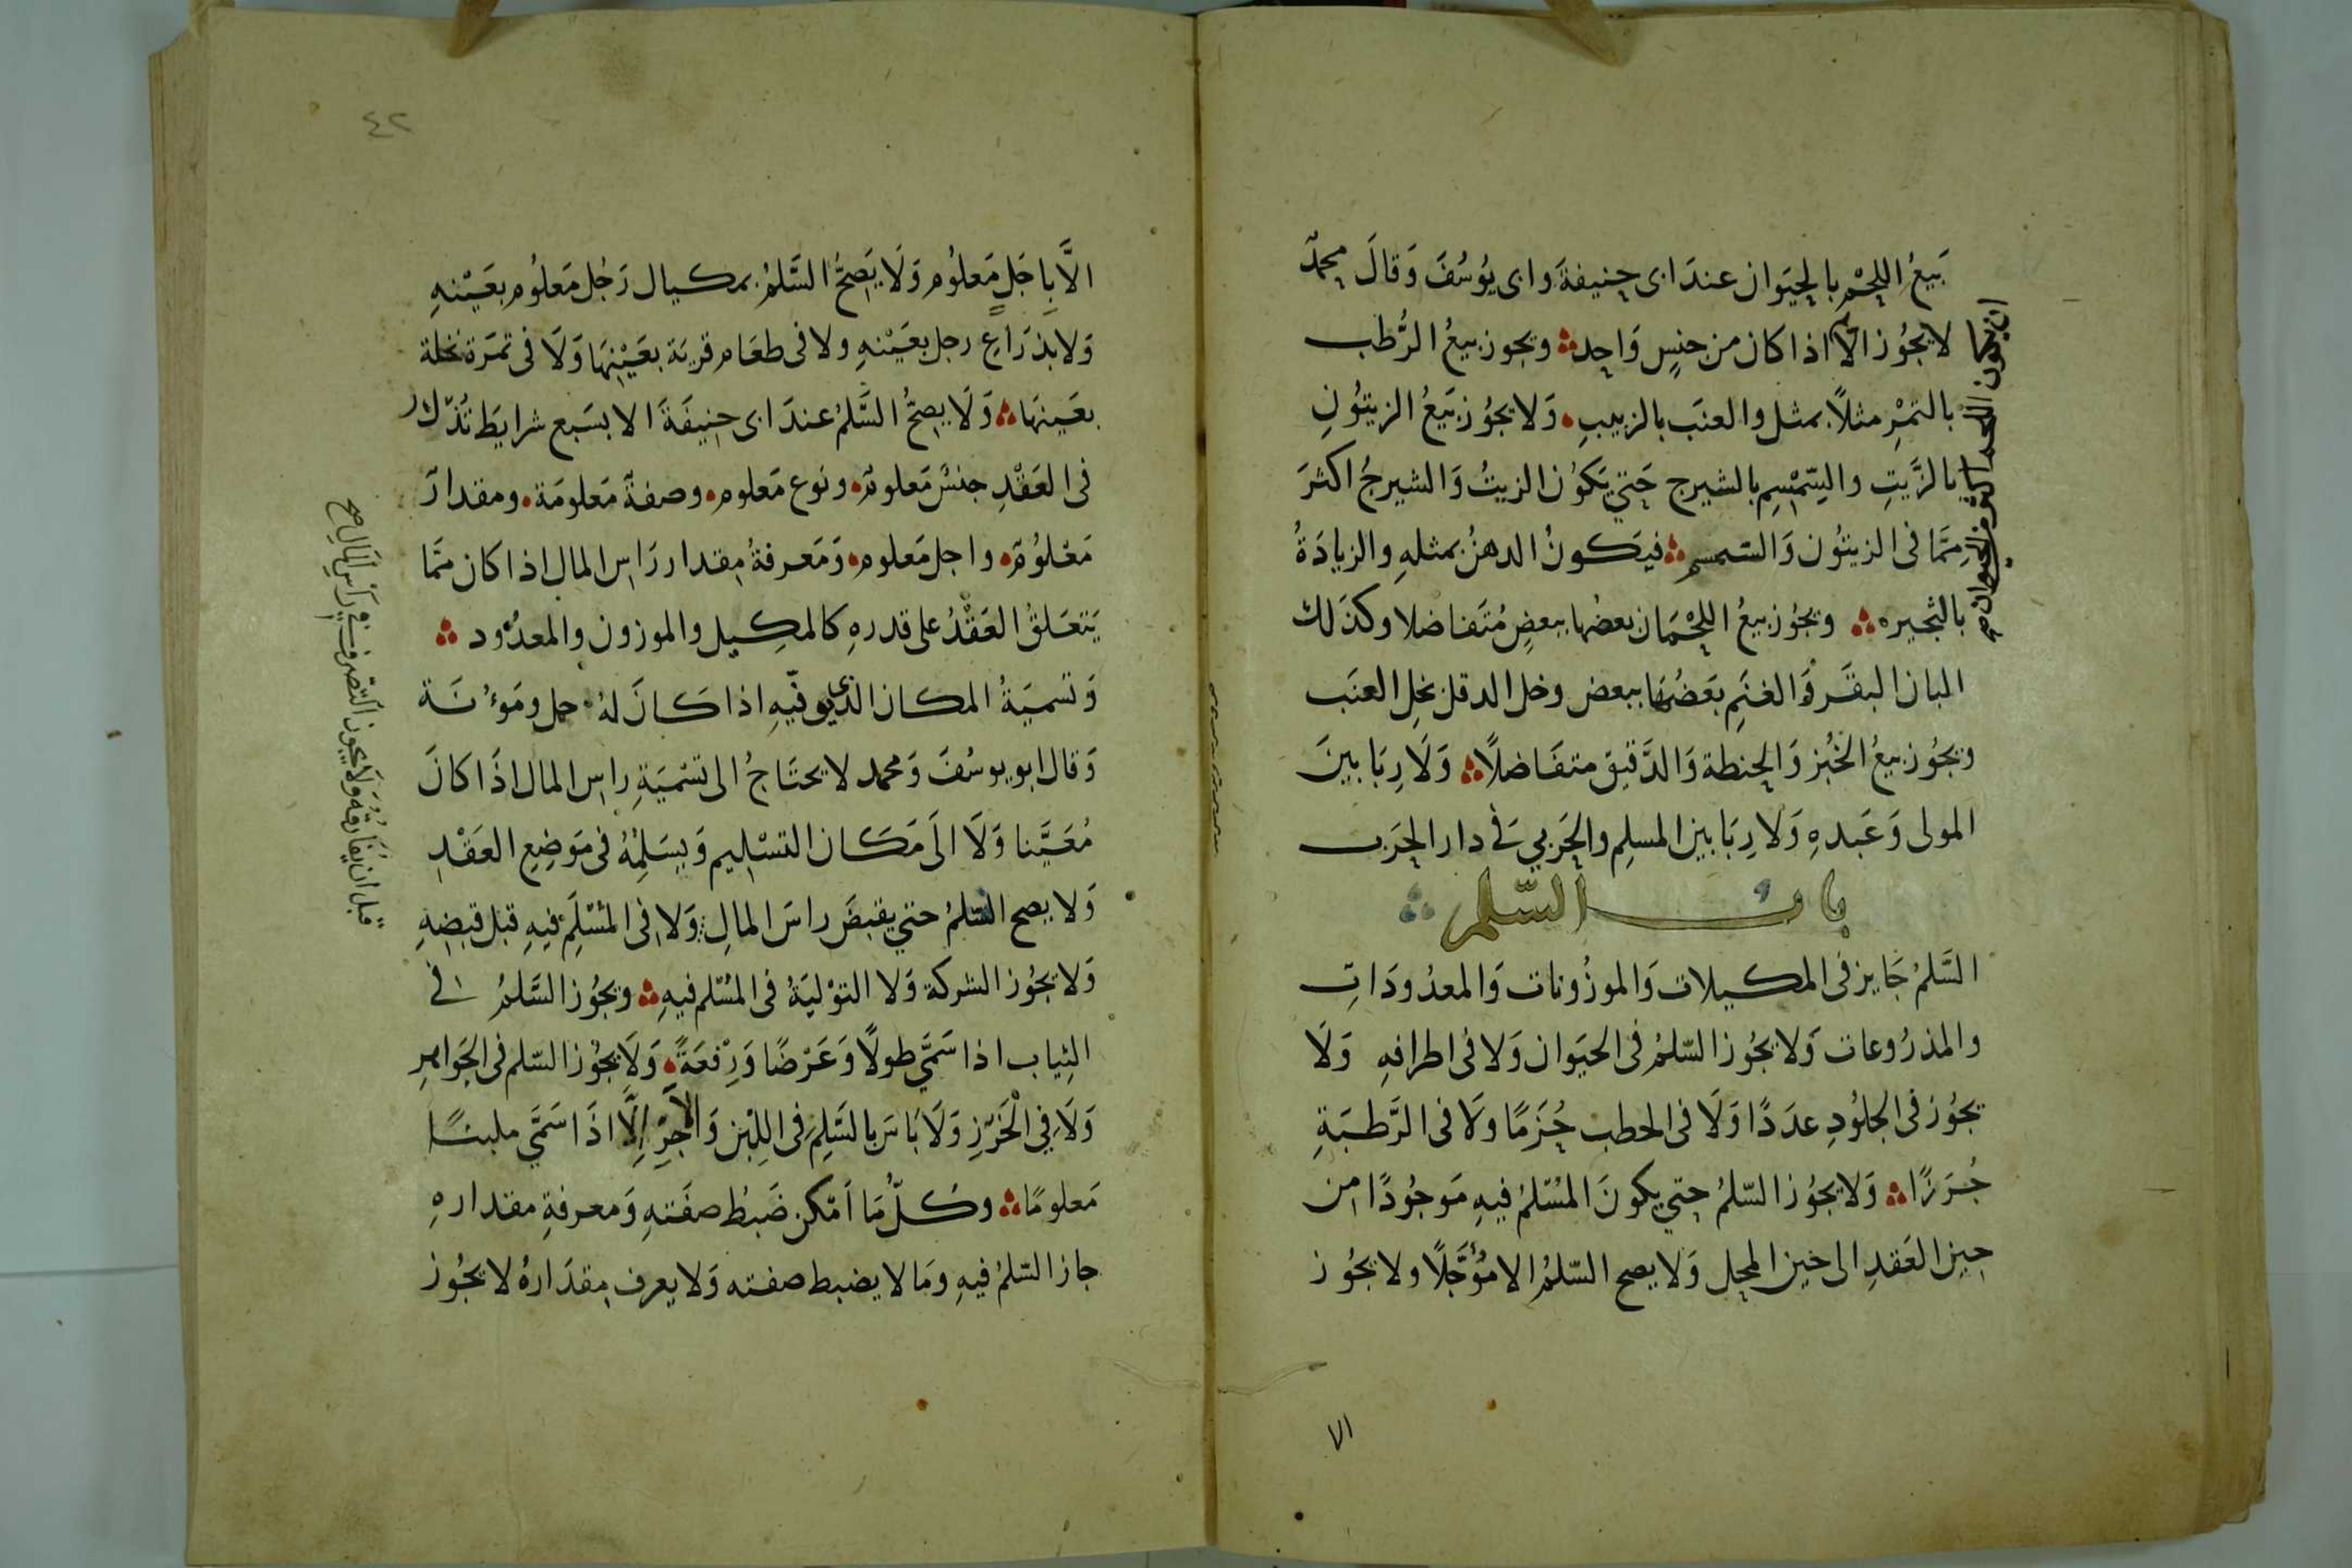 بَيعُ اللحْمِ بالحيَوان عندَ ابى حنيفةَ وابى يوُسُفَ وَقالَ محمّد
لا يجوُز الا اذا كان من جنسٍ وَاحِد ويجوز بيعُ الرُّطب
بالتمْرِ مثلاً بمثل والعنَب بالزبيبِ وَلا يجوُز بَيعُ الزيتوُنِ
بالزَّيتِ والسِّمْسِم بالشيرج حَتي يَكوُن الزيتُ وَالشيرجُ اكثرَ
مِمَّا فى الزيتوُن وَالسّمسم فيَكونُ الدهنُ بمثلهِ والزيادَةُ
بالثجيره ويجوُز بيعُ اللحْمَان بعضُها ببعضٍ مُتَفاضلا وكذَلك
البان البقَر وَالغنَمِ بَعَضُهَا ببعض وخل الدقل بخلِ العنَب
ويجوُز بيعُ الخبُز وَالحِنطة وَالدَّقيق متفَاضلاً وَلَا رِبَا بينَ
المولى وَعَبدهِ وَلَا رِبَا بين المسلِم والحَربي فى دار الحَرب
باب السَّلم
السَّلمُ جَايز فى المكيلات وَالموزُونات وَالمعدُودَاتِ
والمذرُوعات وَلا يجوُز السّلمُ فى الحيَوان وَلا فى اطرافهِ وَلَا
يجوُز فى الجلوُدِ عدَدًا وَلَا فى الحطب حُزَمًا ولا فى الرَّطبَةِ
جُرَزًا وَلا يجوُز السّلمُ حتي يكونَ المُسْلمُ فيهِ مَوجوُدًا من
حين العَقدِ الى حين المحِل وَلا يصح السّلمُ الا مُؤَجَّلًا ولا يجوُز
ان يكون اللحم اكثر من الحيوان
الا
٤٢
الَّا بِاجَلٍ مَعلوُم وَلَا يَصِحُّ السَّلمُ بمكيال رَجُل مَعلوُم بعَيْنهِ
وَلا بذرَاعِ رجل بعَيْنهِ ولا فى طعَام قريَة بعَيْنِهَا وَلَا فى ثمرَة نخلة
بعَينهَا وَلَا يصِحُّ السَّلمُ عندَ ابى حنِيفَةَ الا بسَبع شرايطَ تُذكر
فى العَقْدِ جنسٌ مَعلومٌ ونوع مَعلوم وصفةٌ مَعلومَة ومقدارٌ
مَعْلوُمٌ واجل مَعلوم وَمَعرفةُ مقدار رَاس المال اذا كان ممَّا
يَتعَلقُ العَقْدُ على قدرهِ كالمكِيل والموزون والمعدُود
وَتسميَةُ المكان الذى يوفّيهِ اذا كانَ لهُ حمل ومَوءُنَة
وَقال ابو يوسُفَ وَمحمد لا يحتَاجُ الى تسْميَةِ راس المال اذَا كانَ
مُعَيَّنا وَلَا الَى مَكَان التسْلِيم وَيسَلمْهُ فى مَوضِعِ العَقْدِ
وَلا يصح السّلمُ حتي يقبضَ راسَ المالِ وَلا فى المُسْلَمِ فيهِ قبل قبضهِ
وَلا يجوُز الشركة وَلا التوْليَةُ فى المُسْلم فيهِ ويجوُز السَّلمُ فى
الثِياب اذا سَمَّي طولًا وَعَرْضًا وَرقعَةً وَلَا يجوُز السّلم فى الجوَاهرِ
وَلَا فِي الْخَرَزِ وَلَا بَاسَ بالسَّلِم فى اللبْن وَالآجرِّ اِلَّا اذَا سَمَّي ملبنًا
مَعلومًا وكلُّ مَا اَمْكن ضَبطُ صفَتهِ وَمعرفةِ مقدارهِ
جاز السّلمُ فيهِ وَمَا لا يضبط صفته وَلا يعرف مقدَارهُ لا يجوُز
قبل ان يفارقه ولا يجوز التصرف فى رأس المال صح